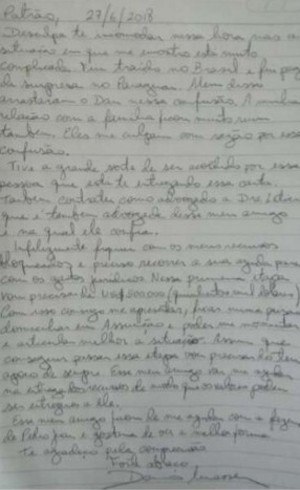 Patrão, 27/6/2018
Desculpa te incomodar nessa hora mas a
situação em que me encontro está muito
complicada. Fui traido no Brasil e fui pego
de surpresa no Paraguai. Alem disso
arrastaram o Dan nessa confusão. A minha
relação com a familia ficou muito ruim
tambem. Eles me culpam com razão por essa
confusão.
Tive a grande sorte de ser acolhido por essa
pessoa que está te entregando essa carta.
Tambem contratei como advogada a Dra
que é tambem advogada desse meu amigo
e na qual ele confia.
Infelizmente fiquei com os meus recursos
bloqueados e preciso recorrer a sua ajuda para
com os gastos juridicos. Nessa primeira etapa
vou precisar de US$ 500.000 (quinhentos mil dolares)
Com isso consigo me apresentar, ficar numa prisão
domiciliar em Assunción e poder me movimentar
e articular melhor a situação. Assim que
conseguir passar essa etapa vou precisar
agora de sempre. Esse meu amigo vai me ajudar
na entrega dos recursos de modo que os valores podem
ser entregues a ele.
Esse meu amigo ficou de me ajudar com a
de Pedro Juan e gostaria de ver a melhor forma
Te agradeço pela compreensão
Forte abraço
Dario Messer